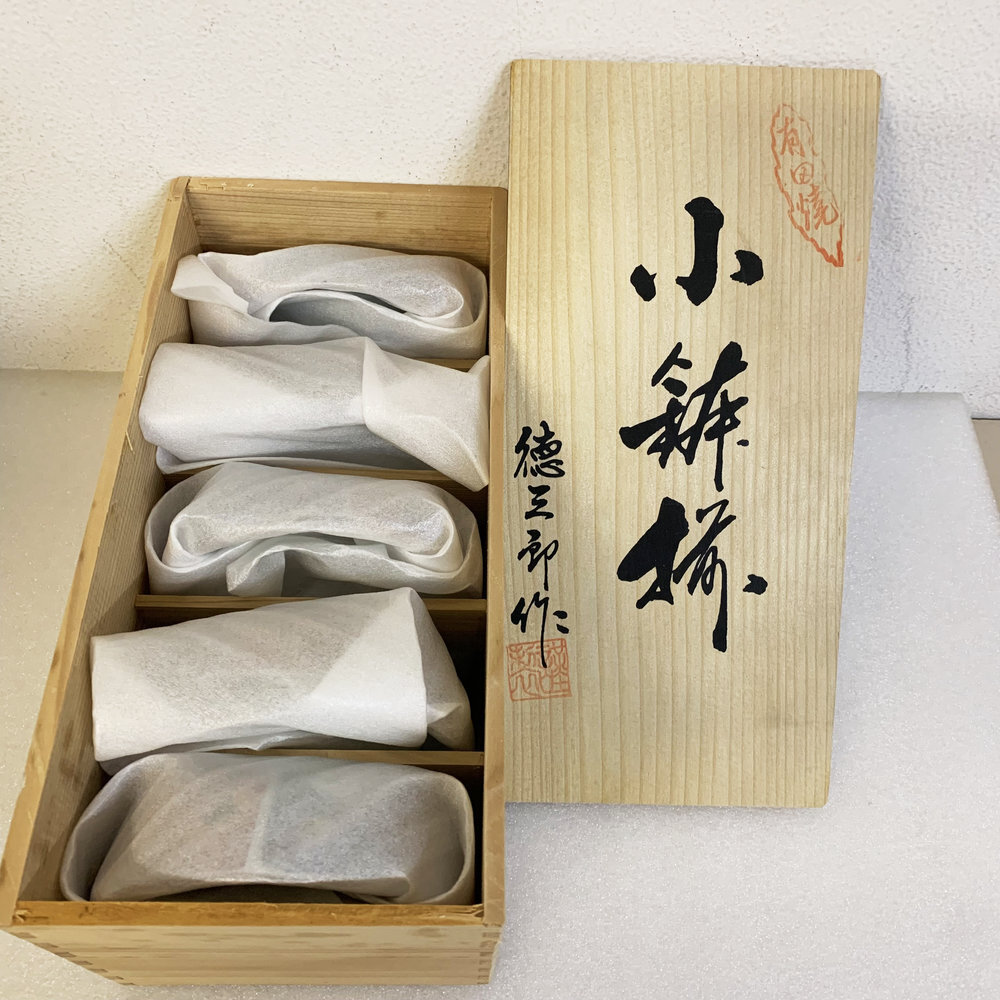 有田焼
小鉢揃
徳三郎作